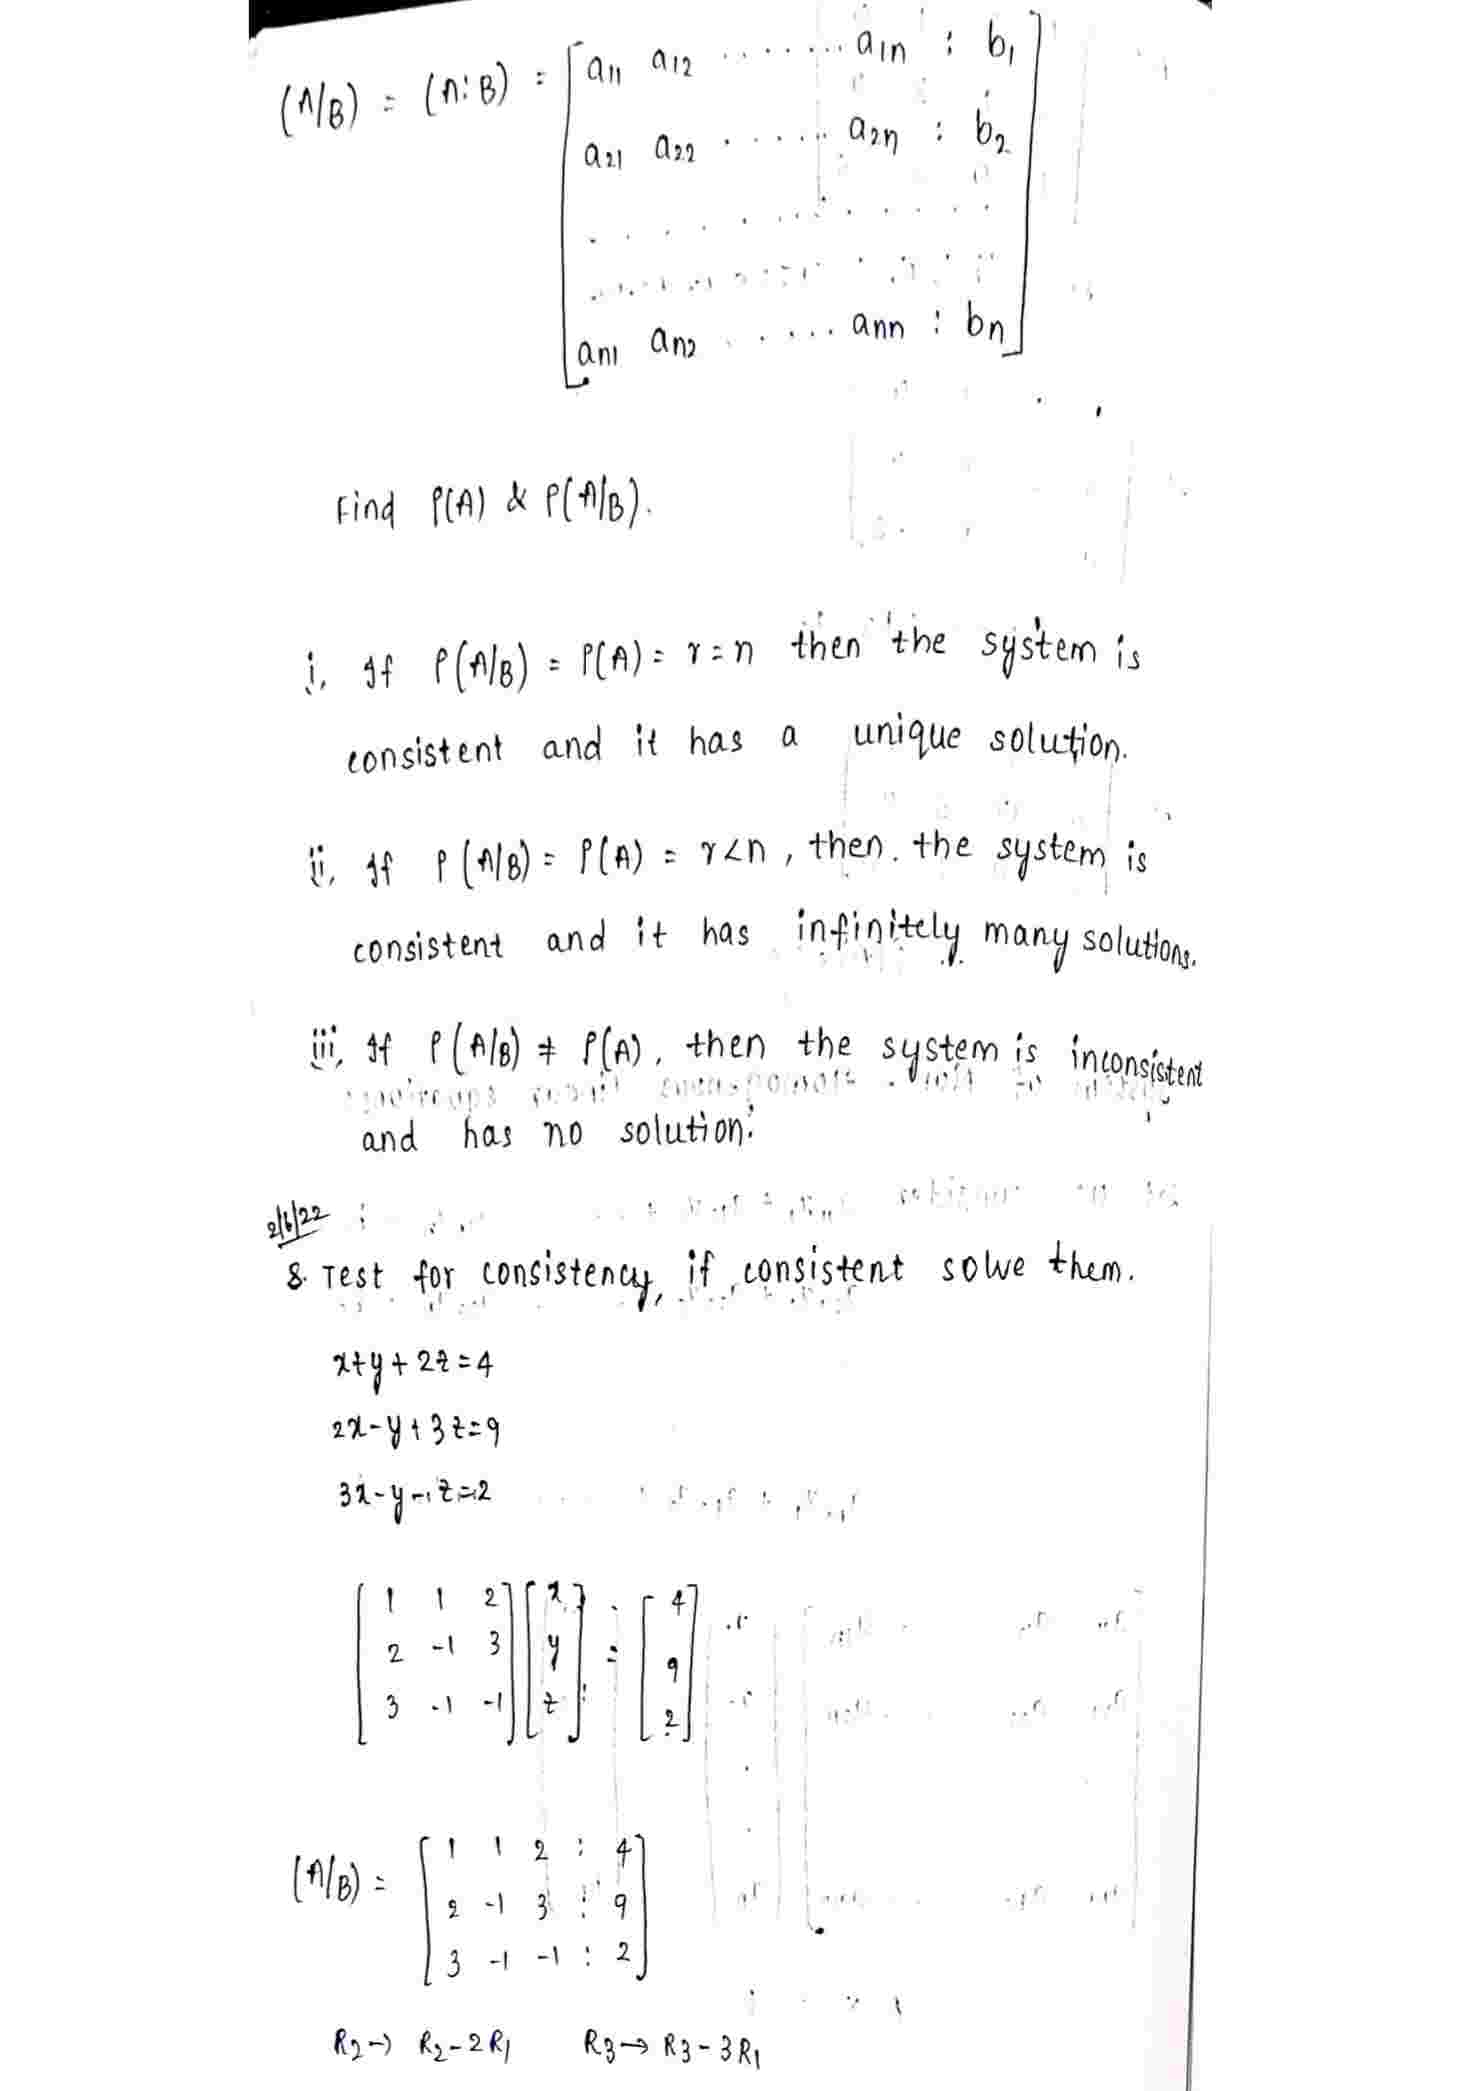 (A/B) = (A:B) = [a11 a12 ....... a1n : b1
a21 a22 ...... a2n : b2
. . . . . . . . . . .
. . . . . . . . . . .
an1 an2 ...... ann : bn]
Find ρ(A) & ρ(A/B).
i, If ρ(A/B) = ρ(A) = r = n then the system is
consistent and it has a unique solution.
ii, If ρ(A/B) = ρ(A) = r<n, then. the system is
consistent and it has infinitely many solutions.
iii, If ρ(A/B) ≠ ρ(A), then the system is inconsistent
and has no solution.
2/6/22
8. Test for consistency, if consistent solve them.
x+y+2z=4
2x-y+3z=9
3x-y-z=2
[1 1 2] [x] = [4]
[2 -1 3] [y] [9]
[3 -1 -1] [z] [2]
(A/B) = [1 1 2 : 4
2 -1 3 : 9
3 -1 -1 : 2]
R2→ R2-2R1 R3→ R3-3R1